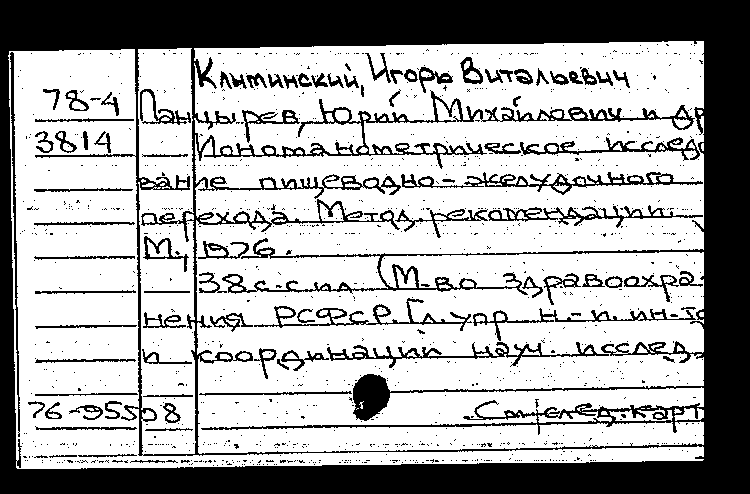 Климинский, Игорь Витальевич
78-4 Панцырев, Юрий Михайлович и др
3814 Иономанометрическое исследо
вание пищеводно-желудочного
перехода. Метод. рекомендации.
М., 1976.
38 с. с ил (М-во здравоохра-
нения РСФСР. Гл. упр н.-и. ин-то
и координации науч. исслед.
76-95508 См. след. карт